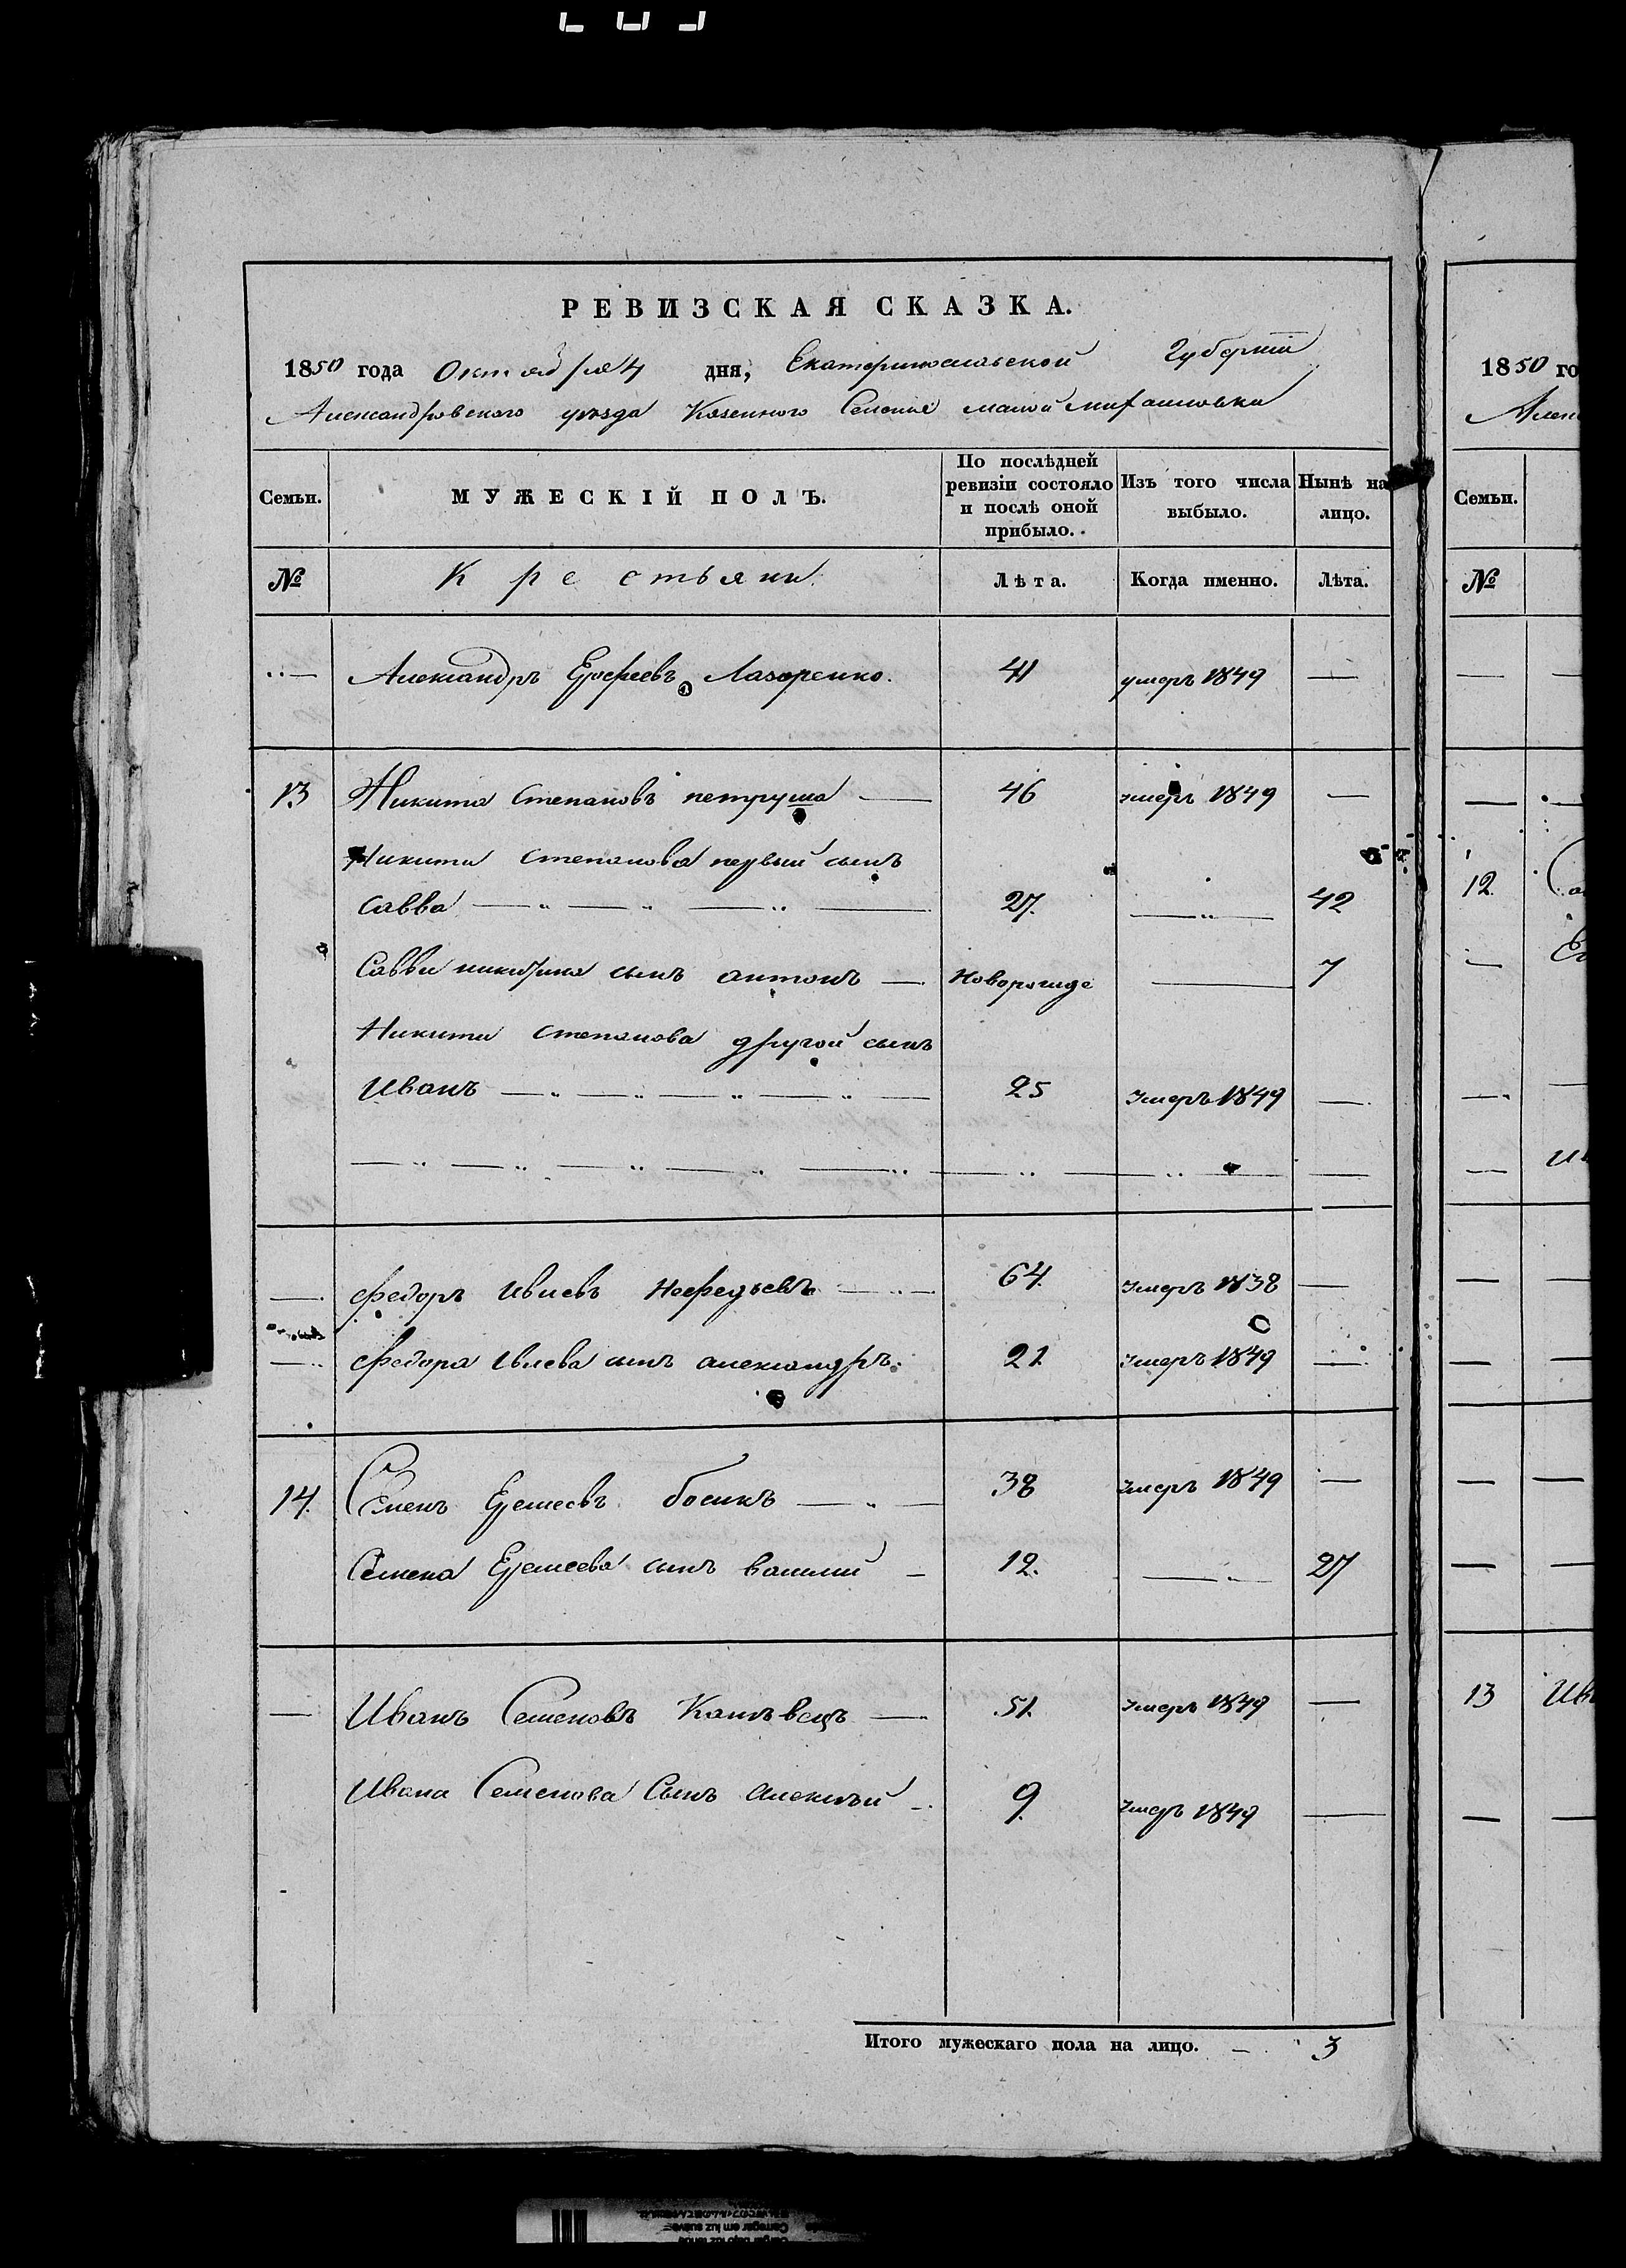 РЕВИЗСКАЯ СКАЗКА.
1850 года Октября 4 дня, Екатеринославской Губернiи
Александровского уѣзда Казенного Селенiя малой михайловки
Семьи. МУЖЕСКIЙ ПОЛЪ. По послѣдней ревизiи состояло и послѣ оной прибыло. Изъ того числа выбыло. Нынѣ на лицо.
№ Крестьяни Лѣта. Когда именно. Лѣта.
Александръ Ерофеевъ Лазоренко. 41 умеръ 1849 —
13 Никита Степановъ петруша — 46 умеръ 1849 —
Никити Степанова первый сынъ
Савва — 27. — 42
Савви никитина сынъ антонъ — Новорожде — 7
Никити Степанова другой сынъ
Иванъ — 25 умеръ 1849 —
— федоръ Ивлевъ Нефедьевъ — 64. умеръ 1838 —
— федора Ивлева сынъ александръ. 21. умеръ 1849 —
14. Семенъ Еремеевъ босикъ — 38 умеръ 1849 —
Семена Еремеева сынъ василий — 12. — 27
— Иванъ Семеновъ — 51. умеръ 1849 —
Ивана Семенова Сынъ алексѣй — 9. умеръ 1849 —
Итого мужескаго пола на лицо. — 3
1850 го
Семьи.
№
12.
13 Ив